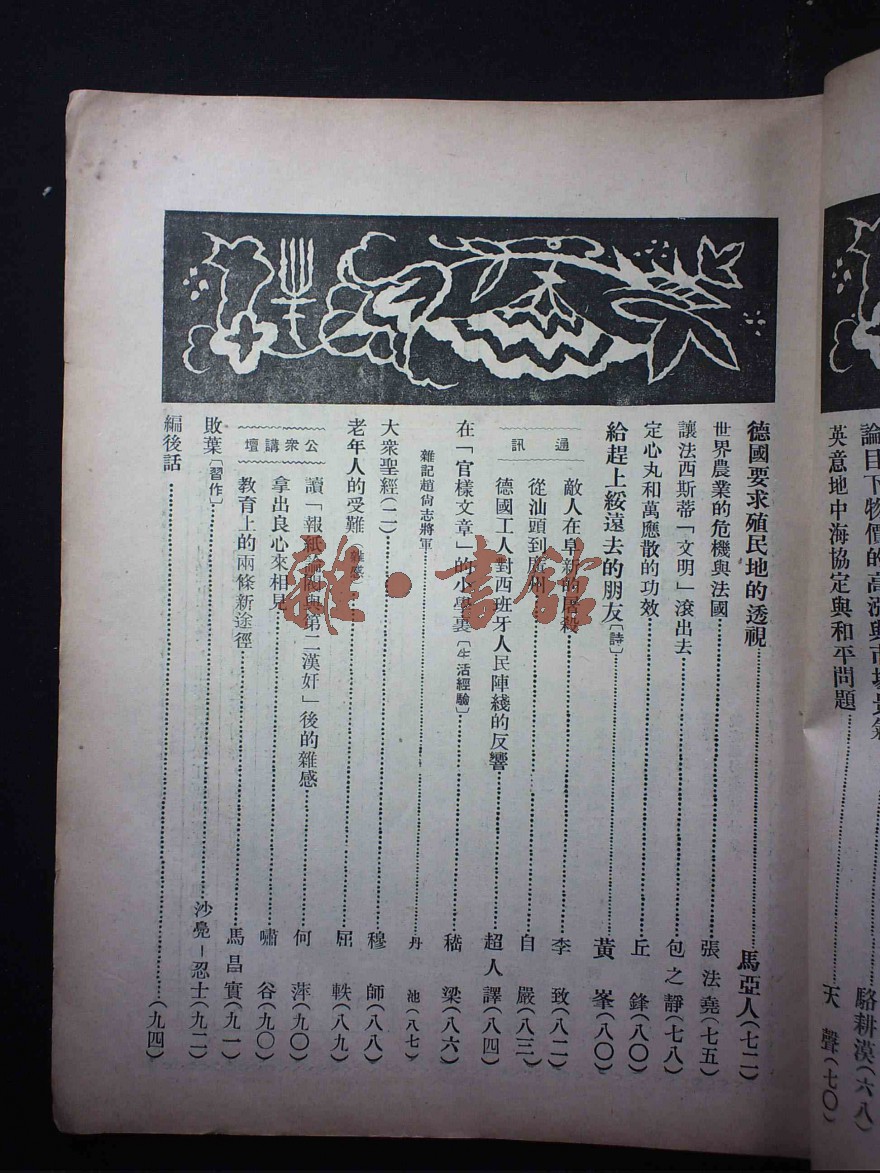 論目下物價的高漲與市場景氣……駱耕漠(六八)
英意地中海協定與和平問題……天聲(七〇)
德國要求殖民地的透視……馬亞人(七二)
世界農業的危機與法國……張法堯(七五)
讓法西斯蒂「文明」滾出去……包之靜(七八)
定心丸和萬應散的功效……丘鋒(八〇)
給趕上綏遠去的朋友〔詩〕……黃峯(八〇)
通訊
敵人在阜新的屠殺……李致(八二)
從汕頭到廣州……自嚴(八三)
德國工人對西班牙人民陣綫的反響……超人譯(八四)
在「官樣文章」的小學裏〔生活經驗〕……嵇梁(八六)
雜記趙尙志將軍……丹池(八七)
大衆聖經(二)……穆師(八八)
老年人的受難(雜感)……屈軼(八九)
公衆講壇
讀「報紙論閥與第二漢奸」後的雜感……何萍(九〇)
拿出良心來相見……嘯谷(九〇)
教育上的兩條新途徑……馬昌實(九一)
敗葉〔習作〕……沙鳧－忍士(九二)
編後話……(九四)
雜·書館